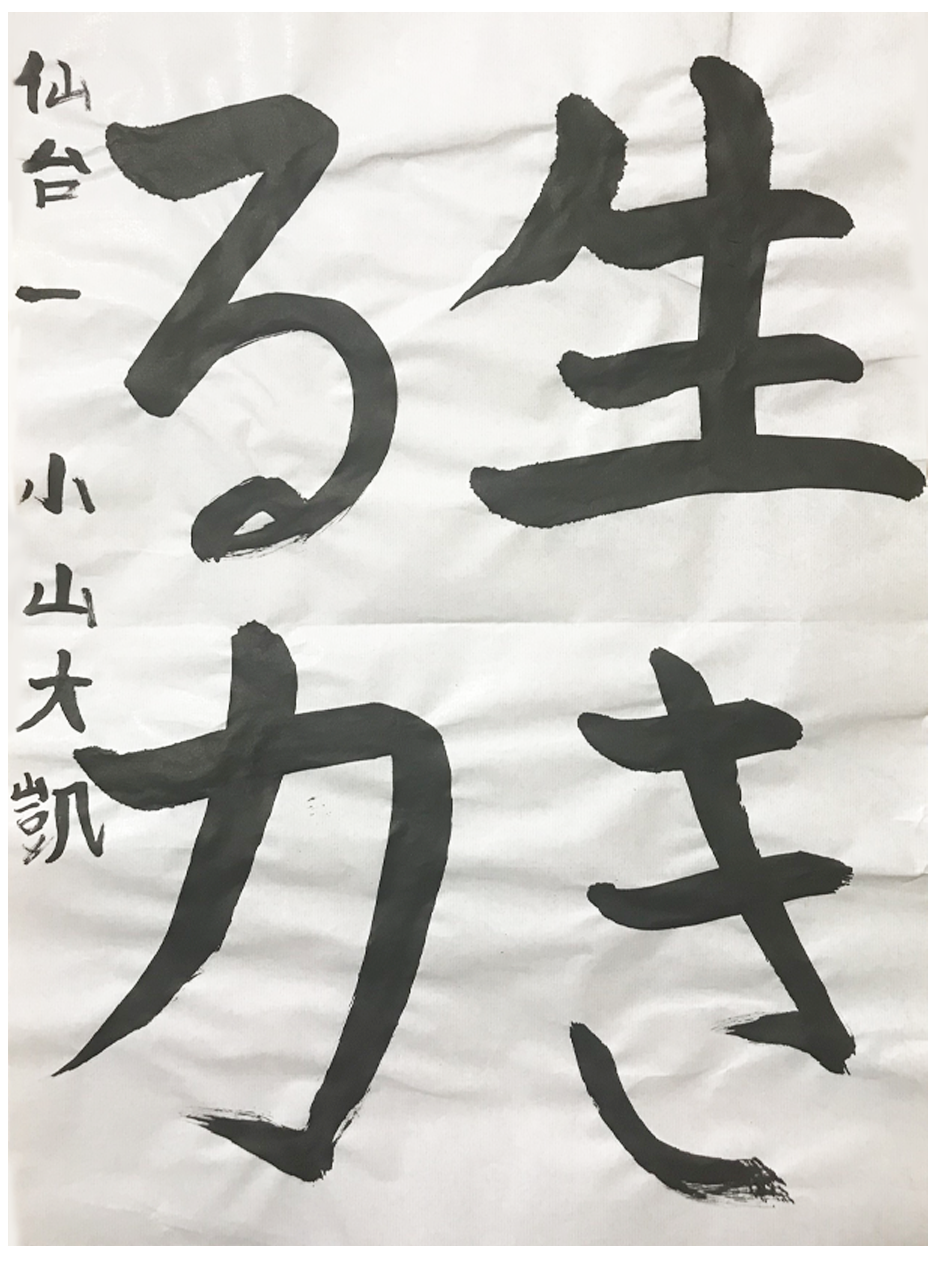 生き
る力
仙台一 小山大凱